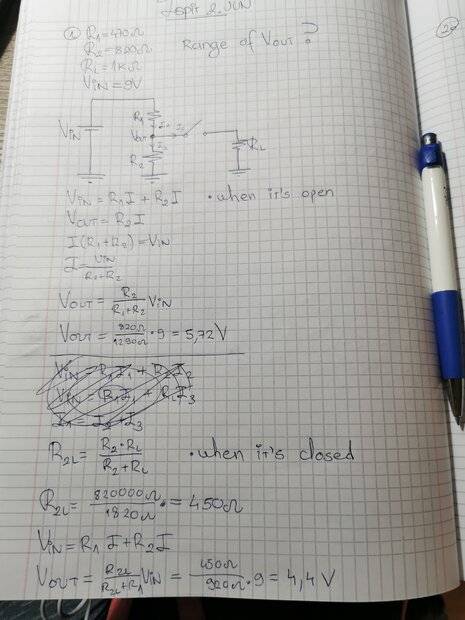 ① R₁=470Ω
R₂=820Ω
RL=1kΩ
VIN=9V
Range of VOUT?
R₁
VIN
VOUT
R₂
RL
VIN = R₁I + R₂I • when it's open
VOUT = R₂I
I(R₁+R₂)=VIN
I = VIN / R₁+R₂
VOUT = R₂ / R₁+R₂ VIN
VOUT = 820Ω / 1290Ω • 9 = 5,72V
VIN = R₁I₁ + R₂I₂
VIN = R₁I₁ + RLI₃
I₁ = I₂ + I₃
R2L = R₂•RL / R₂+RL • when it's closed
R2L = 820000Ω / 1820Ω • = 450Ω
VIN = R₁I + R₂I
VOUT = R2L / R2L+R₁ VIN = 450Ω / 920Ω • 9 = 4,4V